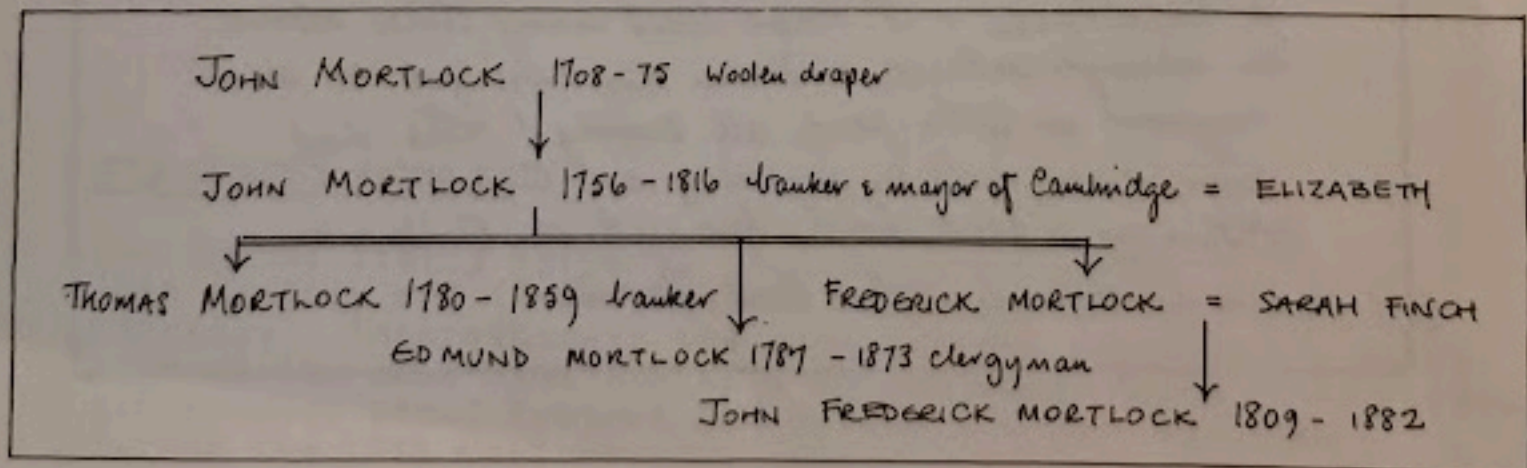 JOHN MORTLOCK 1708-75 Woolen draper
JOHN MORTLOCK 1756-1816 banker & mayor of Cambridge = ELIZABETH
THOMAS MORTLOCK 1780-1859 banker FREDERICK MORTLOCK = SARAH FINCH
EDMUND MORTLOCK 1787-1873 clergyman
JOHN FREDERICK MORTLOCK 1809-1882